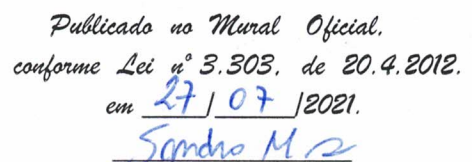 Publicado no Mural Oficial,
conforme Lei nº 3.303, de 20.4.2012.
em 27 / 07 /2021.